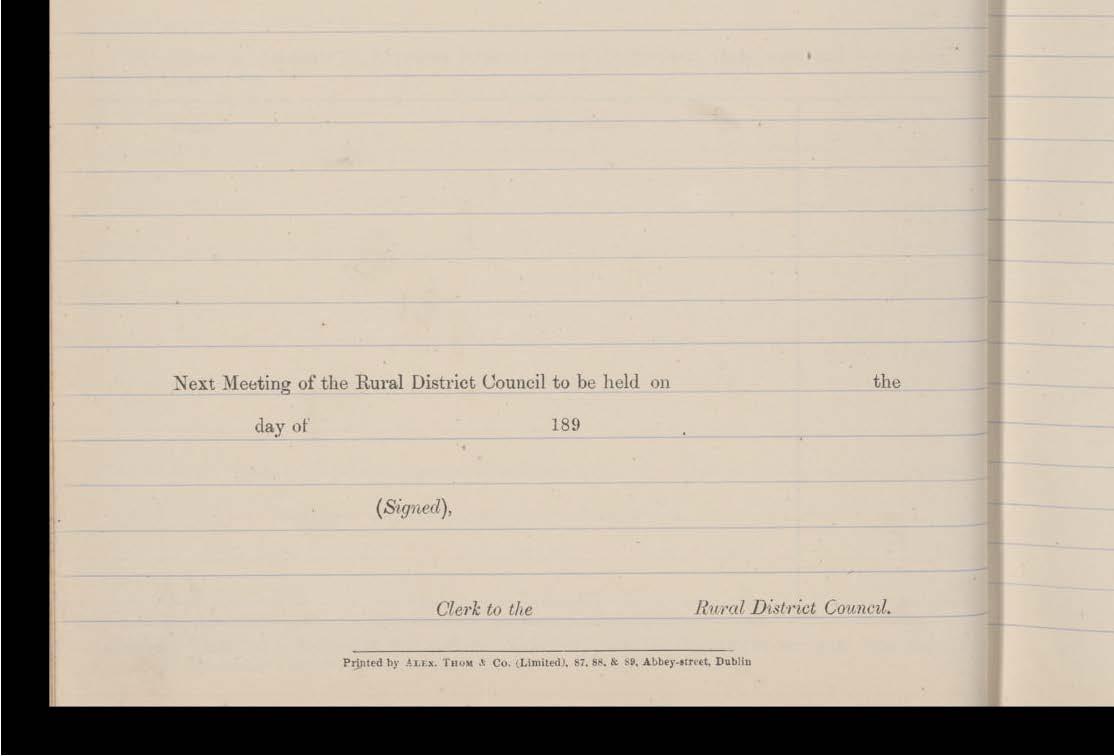 Next Meeting of the Rural District Council to be held on the
day of 189 .
(Signed),
Clerk to the Rural District Council.
Printed by ALEX. THOM & Co. (Limited), 87, 88, & 89, Abbey-street, Dublin